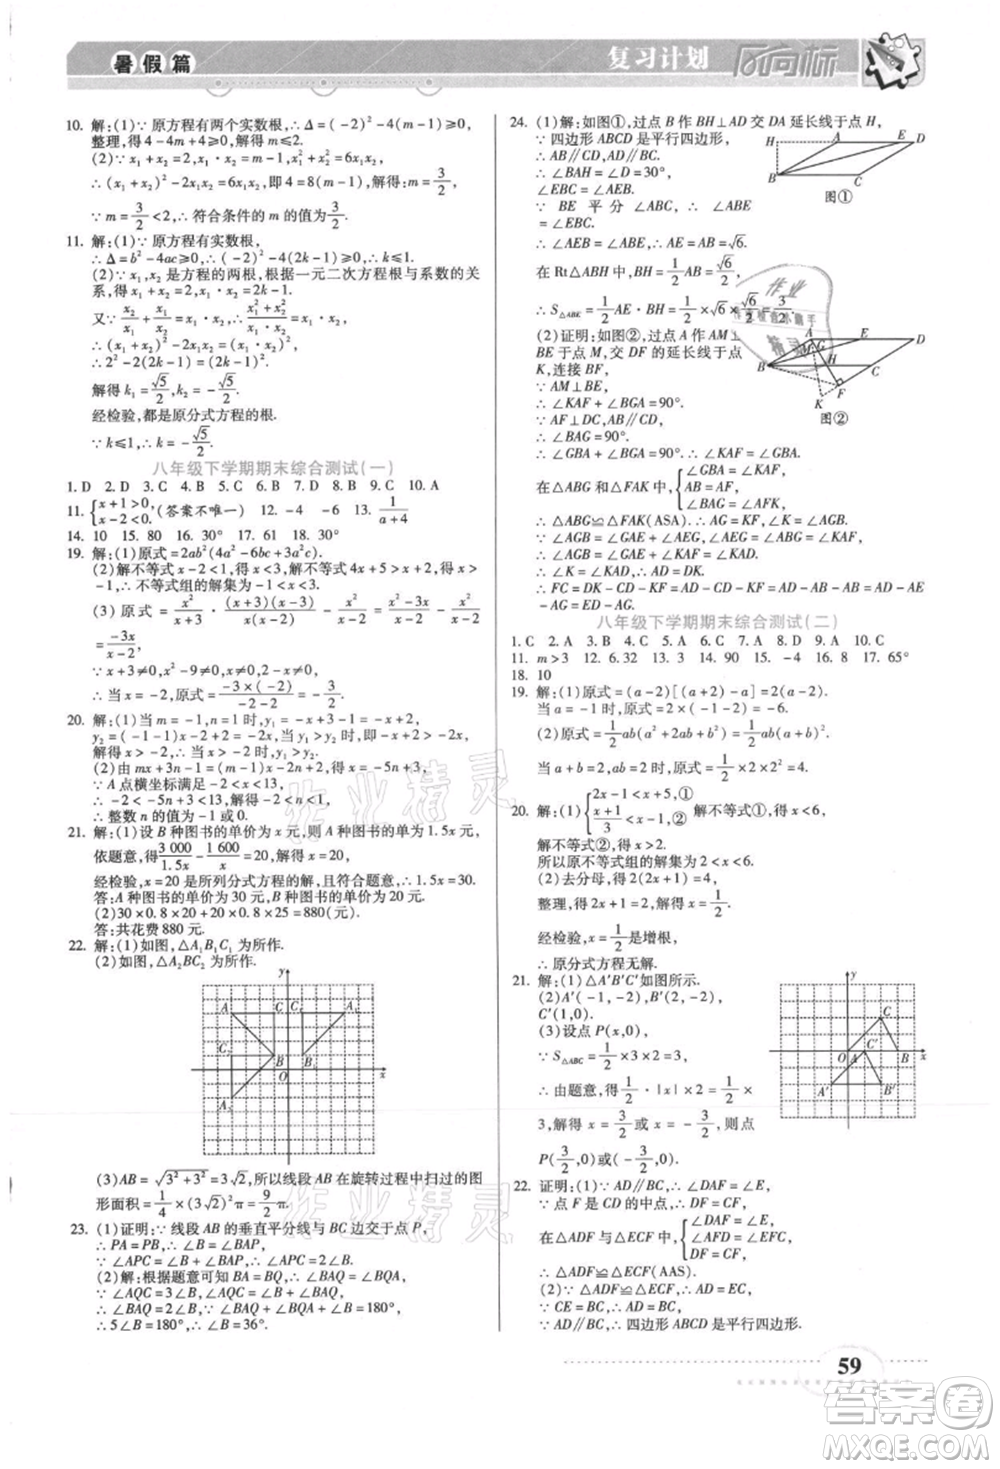 暑假篇
复习计划 风向标
10. 解:(1)∵ 原方程有两个实数根,∴ Δ=(-2)²-4(m-1)≥0,
整理,得 4-4m+4≥0,解得 m≤2.
(2)∵ x₁+x₂=2,x₁·x₂=m-1,x₁²+x₂²=6x₁x₂,
∴ (x₁+x₂)²-2x₁x₂=6x₁x₂,即 4=8(m-1),解得:m=3/2.
∵ m=3/2<2,∴ 符合条件的 m 的值为3/2.
11. 解:(1)∵ 原方程有实数根,
∴ Δ=b²-4ac≥0,∴ (-2)²-4(2k-1)≥0,∴ k≤1.
(2)∵ x₁,x₂ 是方程的两根,根据一元二次方程根与系数的关
系,得 x₁+x₂=2,x₁·x₂=2k-1.
∴ 2²-2(2k-1)=(2k-1)².
解得 k₁=√5/2,k₂=-√5/2.
经检验,都是原分式方程的根.
∵ k≤1,∴ k=-√5/2.
八年级下学期期末综合测试(一)
1. D 2. D 3. C 4. B 5. C 6. B 7. D 8. C 9. C 10. A
11. {x+1>0, x-2<0. (答案不唯一) 12. -4 -6 13. 1/(a+4)
14. 10 15. 80 16. 30° 17. 61 18. 30°
19. 解:(1)原式=2ab²(4a²-6bc+3a²c²).
(2)解不等式 x-2<1,得 x<3,解不等式 4x+5>x+2,得 x>
-1,∴ 不等式组的解集为-1<x<3.
∵ x²-9≠0,x≠0,∴ x≠±3 且 x≠0.
∴ 当 x=-2,原式=-3×(-2)/(-2-2)=-3/2.
20. 解:(1)当 m=-1,n=1 时,y₁>-x+2,
解得 x>-1,∴ 当 x>-1 时,y₁>y₂.
∵ A 点横坐标满足-2<x<13,
∴ 整数 n 的值为 0.
21. 解:(1)设 B 种图书的单价为 x 元,则 A 种图书的单价为 1.5x 元,
依题意,得3 000/1.5x-1 600/x=20,解得:x=20,
经检验,x=20 是所列分式方程的解,且符合题意,∴ 1.5x=30.
答:A 种图书的单价为 30 元,B 种图书的单价为 20 元.
(2)30×0.8×20+20×0.8×25=880(元).
答:共花费 880 元.
22. 解:(1)如图,△A₁B₁C₁ 为所作.
(2)如图,△A₂BC₂ 为所作.
(3)AB=√(3²+3²)=3√2,所以线段 AB 在旋转过程中扫过的图
形面积=1/4×(3√2)²π=9/2π.
23. (1)证明:∵ 线段 AB 的垂直平分线与 BC 边交于点 P,
∴ PA=PB,∴ ∠B=∠BAP,
∵ ∠APC=∠B+∠BAP,∴ ∠APC=2∠B.
(2)解:根据题意可知 BA=BQ,∴ ∠BAQ=∠BQA,
∵ ∠AQC=3∠B,∠AQC=∠B+∠BAQ,∴ ∠BAQ=2∠B,
∵ ∠BAQ+∠BQA+∠B=180°,
∴ 5∠B=180°,∴ ∠B=36°.
24. (1)解:如图①,过点 B 作 BH⊥AD 交 DA 延长线于点 H,
∵ 四边形 ABCD 是平行四边形,
∴ AD∥BC,AB∥CD.
∴ ∠BAH=∠D=30°,
∠EBC=∠AEB.
∵ BE 平分∠ABC,∴ ∠ABE=
∠EBC.
∴ ∠AEB=∠ABE,∴ AE=AB=√6.
在 Rt△ABH 中,BH=1/2AB=√6/2,
∴ S△ABE=1/2AE·BH=1/2×√6×√6/2=3/2.
图①
(2)证明:如图②,过点 A 作 AM⊥
BE于点 M,交 DF 的延长线于点
K,连接 BF,
∵ AM⊥BE,
∴ ∠KAF+∠BGA=90°.
∵ AF⊥DC,AB∥CD,
∴ ∠BAG=90°.
∴ ∠GBA+∠BGA=90°,∴ ∠KAF=∠GBA.
图②
在△ABG 和△FAK 中,{∠GBA=∠KAF, AB=AF, ∠BAG=∠AFK,
∴ △ABG≌△FAK(ASA).∴ AG=KF,∠K=∠AGB.
∵ ∠AGB=∠GAE+∠AEG,∠KAD=∠GAE+∠ABG,
∴ ∠K=∠KAD,∴ AD=DK.
∴ FC=DC-DF=AB-DF=AD-DF=AD-AE-
ED+AG.
八年级下学期期末综合测试(二)
1. C 2. A 3. B 4. B 5. C 6. D 7. A 8. D 9. A 10. C
11. m>3 12. 6.32 13. 3 14. 90 15. -4 16. 8 17. 65°
18. 10
19. 解:(1)原式=(a-2)[(a+2)-a]=2(a-2).
当 a=-1 时,原式=2×(-1-2)=-6.
(2)原式=1/2ab(a²+2ab+b²)=1/2ab(a+b)².
当 a+b=2,ab=2 时,原式=1/2×2×2²=4.
20. 解:(1){2x-1<x+5,① (x+1)/3<x-1,② 解不等式①,得 x<6.
解不等式②,得 x>2.
所以原不等式组的解集为 2<x<6.
经检验,x=1/2是增根,
∴ 原分式方程无解.
21. 解:(1)△A′B′C′如图所示.
(2)A′(-1,-2),B′(2,-2),
C′(1,0).
(3)设点 P(x,0),
∵ S△ABC=1/2×3×2=3,
∴ 由题意,得1/2·|x|×2=1/2×
3,解得 x=3/2或 x=-3/2,则点
P(3/2,0)或(-3/2,0).
22. 证明:(1)∵ AD∥BC,∴ ∠DAF=∠E,
∵ 点 F 是 CD 的中点,∴ DF=CF.
在△ADF 与△ECF 中,{∠DAF=∠E, ∠AFD=∠EFC, DF=CF,
∴ △ADF≌△ECF(AAS).
(2)∵ △ADF≌△ECF,∴ AD=EC,
∵ CE=BC,∴ AD=BC,
∵ AD∥BC,∴ 四边形 ABCD 是平行四边形.
59
作业精灵
答案圈
MXQE.COM